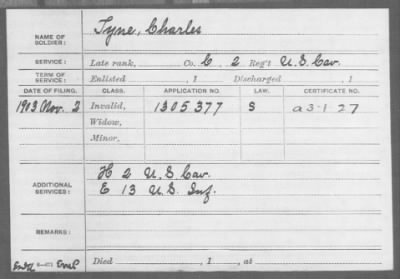 NAME OF SOLDIER: Tyne, Charles
SERVICE: Late rank, Co. C 2 Reg't U.S. Cav.
TERM OF SERVICE: Enlisted , 1 Discharged , 1
DATE OF FILING. CLASS. APPLICATION NO. LAW. CERTIFICATE NO.
1913 Nov. 2 Invalid, 1305377 S a3-1-27
Widow,
Minor,
ADDITIONAL SERVICES: H 2 U.S. Cav.
E 13 U.S. Inf.
REMARKS:
Died , 1 , at